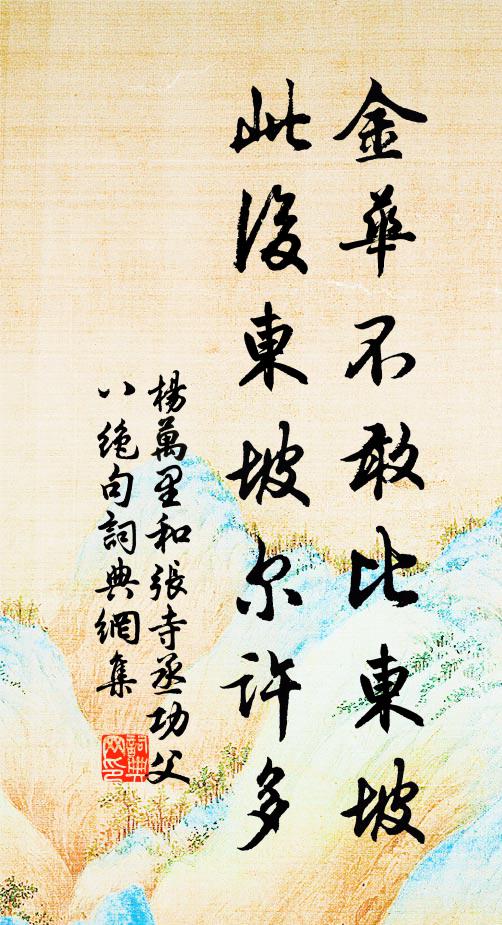 金華不敢比東坡
此後東坡尔許多
楊萬里和張寺丞功父
八絶句詞典網集
詞典网印